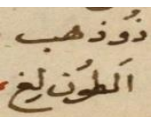 ذُو ذهب
اَلطَوُن لغ